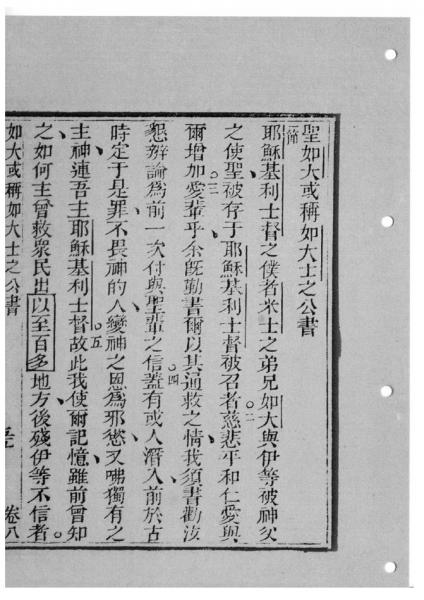 聖如大或稱如大士之公書
耶穌基利士督之僕者米士之弟兄如大與伊等被神父
之使聖被存于耶穌基利士督被召者慈悲平和仁愛與
爾增加愛輩乎余既勤書爾以其通救之情我須書勸汝
懇辨論為前一次付與聖輩之信蓋有或人潛入前於古
時定于是罪不畏神的人變神之恩為邪慾又咈獨有之
主神連吾主耶穌基利士督故此我使爾記憶雖前曾知
之如何主曾救眾民出以至百多地方後殘伊等不信者
如大或稱如大士之公書 卷八